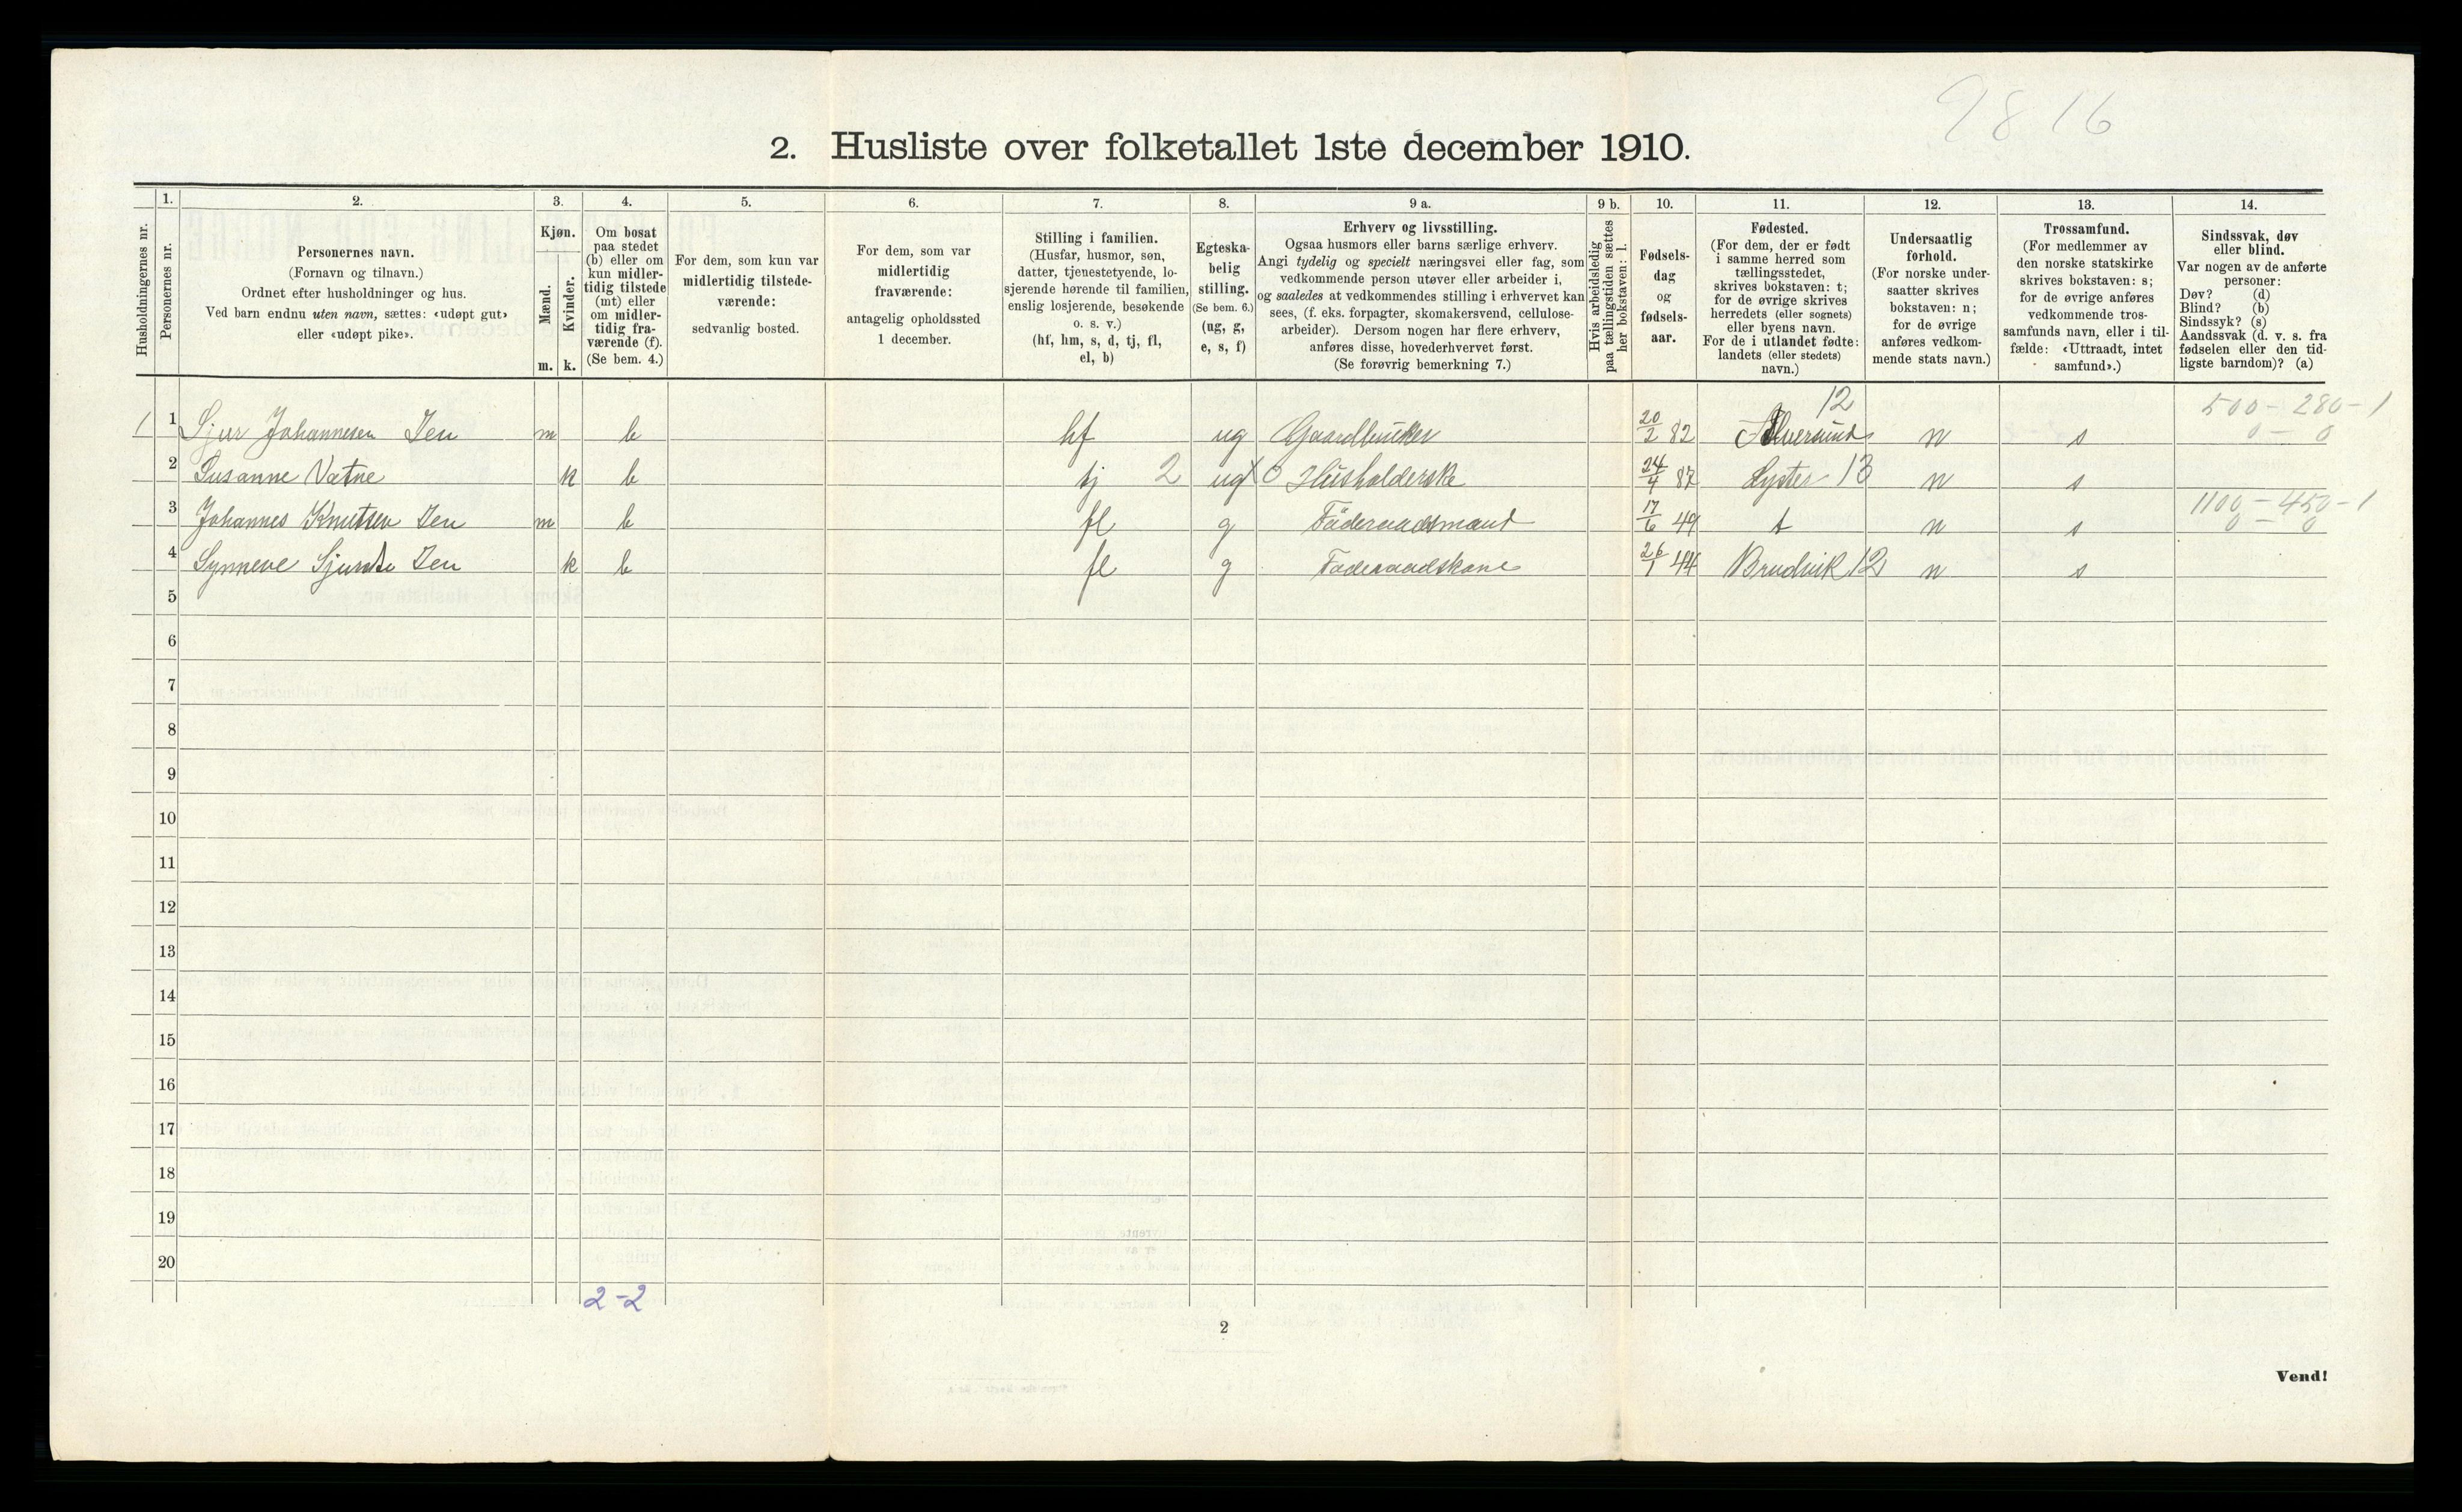 9816
2. Husliste over folketallet 1ste december 1910.
Husholdningernes nr.
1.
Personernes nr.
2.
Personernes navn.
(Fornavn og tilnavn.)
Ordnet efter husholdninger og hus.
Ved barn endnu uten navn, sættes: «udøpt gut»
eller «udøpt pike».
3.
Kjøn.
Mænd.
Kvinder.
m. k.
4.
Om bosat
paa stedet
(b) eller om
kun midler-
tidig tilstede
(mt) eller
om midler-
tidig fra-
værende (f).
(Se bem. 4.)
5.
For dem, som kun var
midlertidig tilstede-
værende:
sedvanlig bosted.
6.
For dem, som var
midlertidig
fraværende:
antagelig opholdssted
1 december.
7.
Stilling i familien.
(Husfar, husmor, søn,
datter, tjenestetyende, lo-
sjerende hørende til familien,
enslig losjerende, besøkende
o. s. v.)
(hf, hm, s, d, tj, fl,
el, b)
8.
Egteska-
belig
stilling.
(Se bem. 6.)
(ug, g,
e, s, f)
9 a.
Erhverv og livsstilling.
Ogsaa husmors eller barns særlige erhverv.
Angi tydelig og specielt næringsvei eller fag, som
vedkommende person utøver eller arbeider i,
og saaledes at vedkommendes stilling i erhvervet kan
sees, (f. eks. forpagter, skomakersvend, cellulose-
arbeider). Dersom nogen har flere erhverv,
anføres disse, hovederhvervet først.
(Se forøvrig bemerkning 7.)
9 b.
Hvis arbeidsledig
paa tællingstiden sættes
her bokstaven: l.
10.
Fødsels-
dag
og
fødsels-
aar.
11.
Fødested.
(For dem, der er født
i samme herred som
tællingsstedet,
skrives bokstaven: t;
for de øvrige skrives
herredets (eller sognets)
eller byens navn.
For de i utlandet fødte:
landets (eller stedets)
navn.)
12.
Undersaatlig
forhold.
(For norske under-
saatter skrives
bokstaven: n;
for de øvrige
anføres vedkom-
mende stats navn.)
13.
Trossamfund.
(For medlemmer av
den norske statskirke
skrives bokstaven: s;
for de øvrige anføres
vedkommende tros-
samfunds navn, eller i til-
fælde: «Uttraadt, intet
samfund».)
14.
Sindssvak, døv
eller blind.
Var nogen av de anførte
personer:
Døv? (d)
Blind? (b)
Sindssyk? (s)
Aandssvak (d. v. s. fra
fødselen eller den tid-
ligste barndom)? (a)
12 500 - 280 - 1
1 1 Sjur Johannesen Ien m b hf ug Gaardbruker 20/2 82 Alversund n s 0 - 0
2 Susanne Vatne k b tj 2 ug X 0 Husholderske 24/4 87 Lyster 13 n s
1100 - 450 - 1
3 Johannes Knutsen Ien m b fl g Föderaadsmand 17/6 49 t n s 0 - 0
4 Synneve Sjursdt Ien k b fl g Foderaadskone 26/1 44 Bruvik 12 n s
5
6
7
8
9
10
11
12
13
14
15
16
17
18
19
20
2-2
2
Vend!